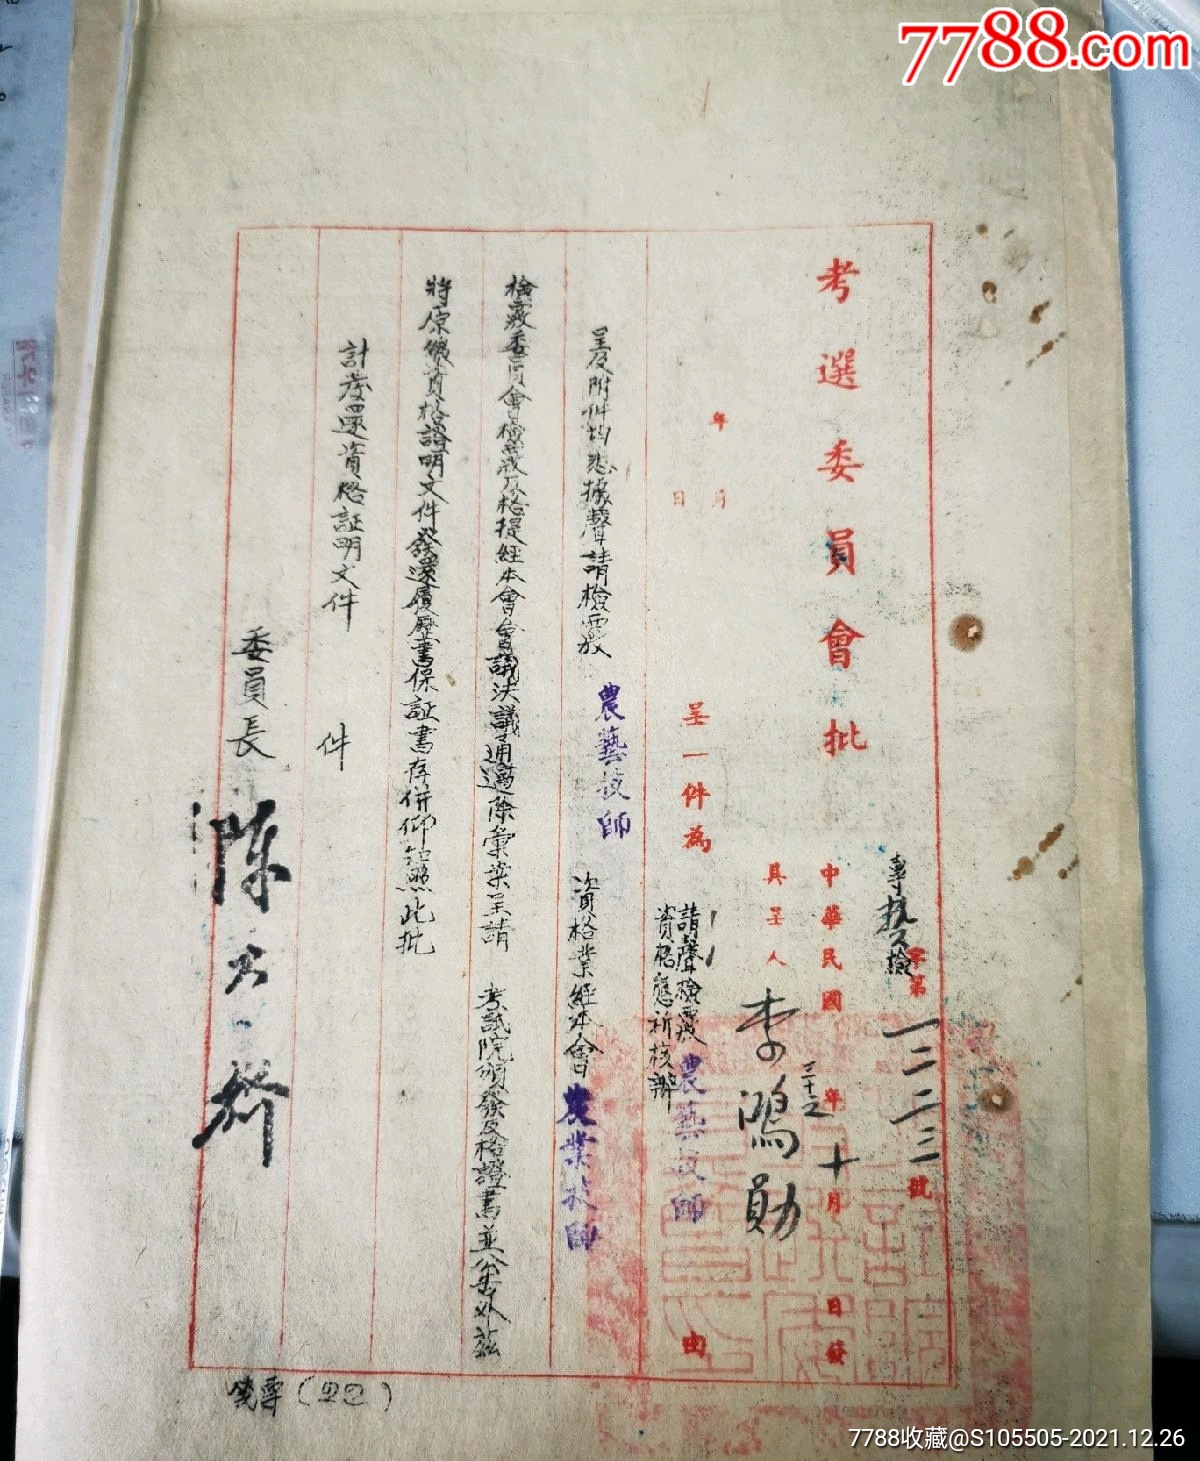 7788.com
考選委員會批
專技檢字第一三二三號
中華民國三十六年十月 日發
具呈人 李鴻勛
年 月 日
呈一件為
請聲檢覈農藝技師
資格懇祈核辦
由
呈及附件均悉據聲請檢覈農藝技師資格業經本會農業技師
檢覈委員會檢覈及格提經本會會議決議通過除彙案呈請考試院頒發及格證書並公告外茲
將原繳資格證明文件發還履歷書保証書存併仰知照此批
計發還資格証明文件 件
委員長 陳大齊
7788收藏@S105505-2021.12.26